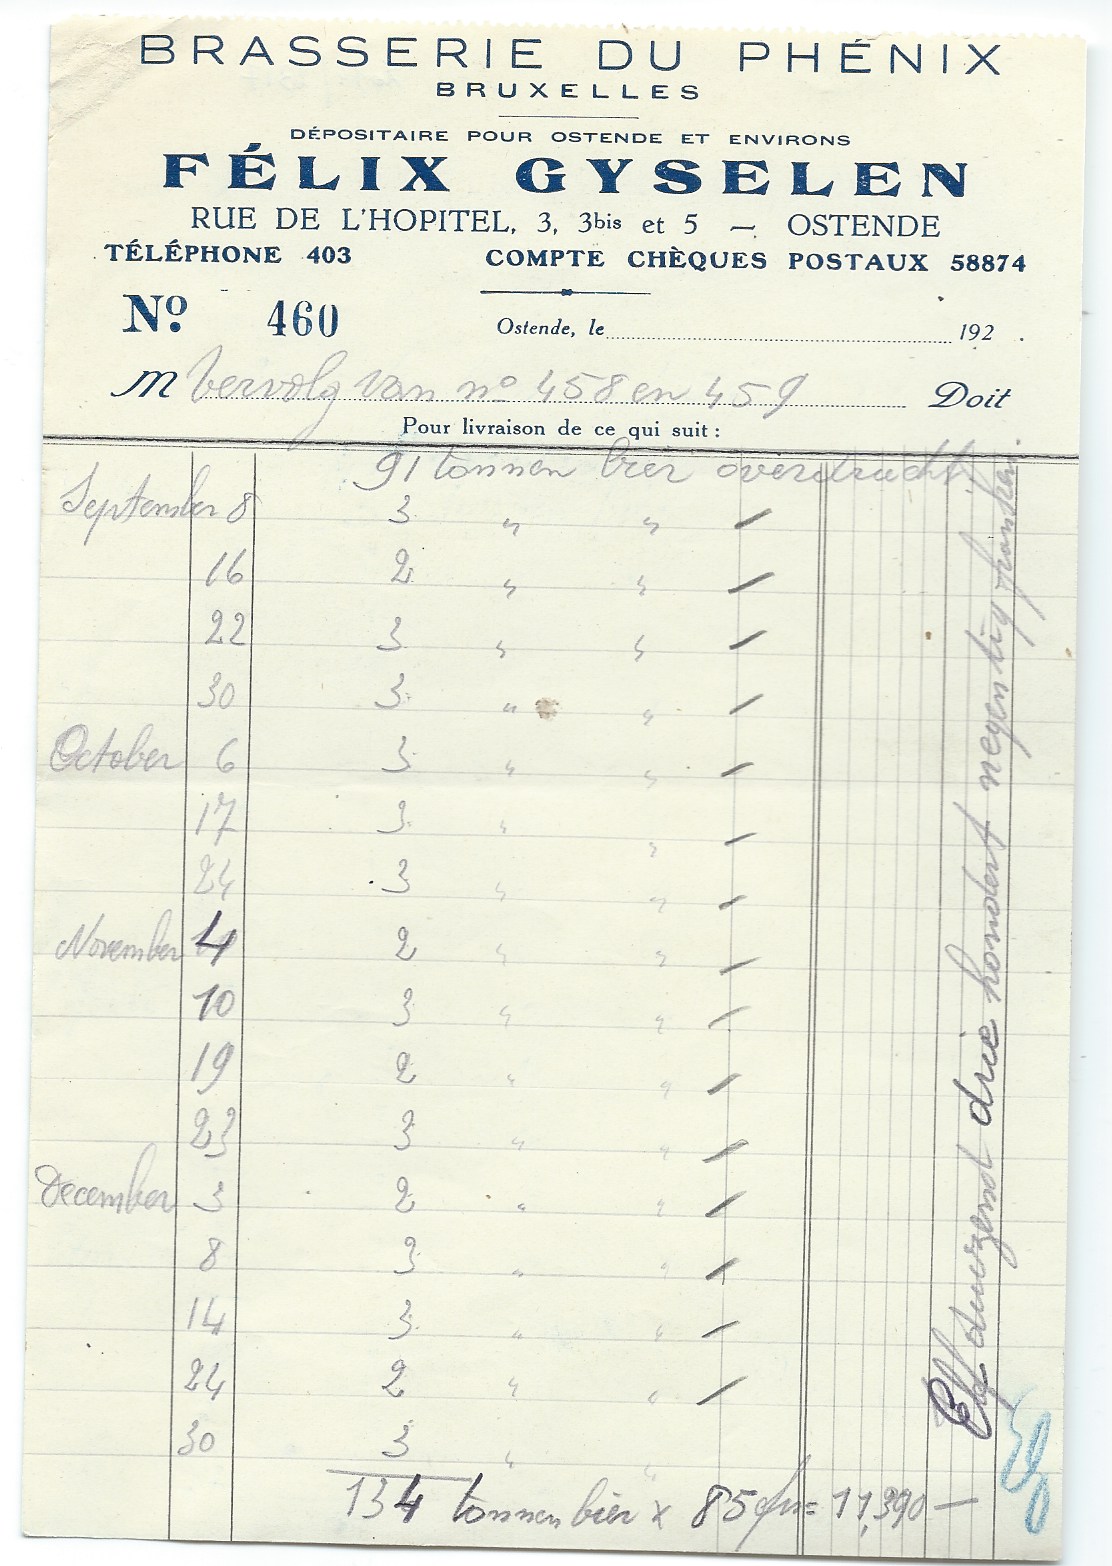 BRASSERIE DU PHÉNIX
BRUXELLES
DÉPOSITAIRE POUR OSTENDE ET ENVIRONS
FÉLIX GYSELEN
RUE DE L'HOPITEL, 3, 3bis et 5 — OSTENDE
TÉLÉPHONE 403 COMPTE CHÈQUES POSTAUX 58874
No. 460 Ostende, le 192 .
M Vervolg van no 458 en 459 Doit
Pour livraison de ce qui suit :
91 tonnen bier overdracht
September 8 3 " "
16 2 " "
22 3 " "
30 3 " "
October 6 3 " "
17 3 " "
24 3 " "
November 4 2 " "
10 3 " "
19 2 " "
23 3 " "
December 3 2 " "
8 3 " "
14 3 " "
24 2 " "
30 3 " "
134 tonnen bier x 85 fr = 11,390 —
Elf duizend drie hondert negentig franken